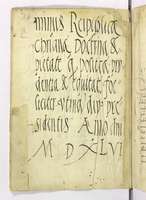 minus Reipublicæ
christiana doctrina &
pietate q̃ politica pru
dentia & equitate fœ
liciter utinã diu præ
sidentis Anno dni
M D X L V I